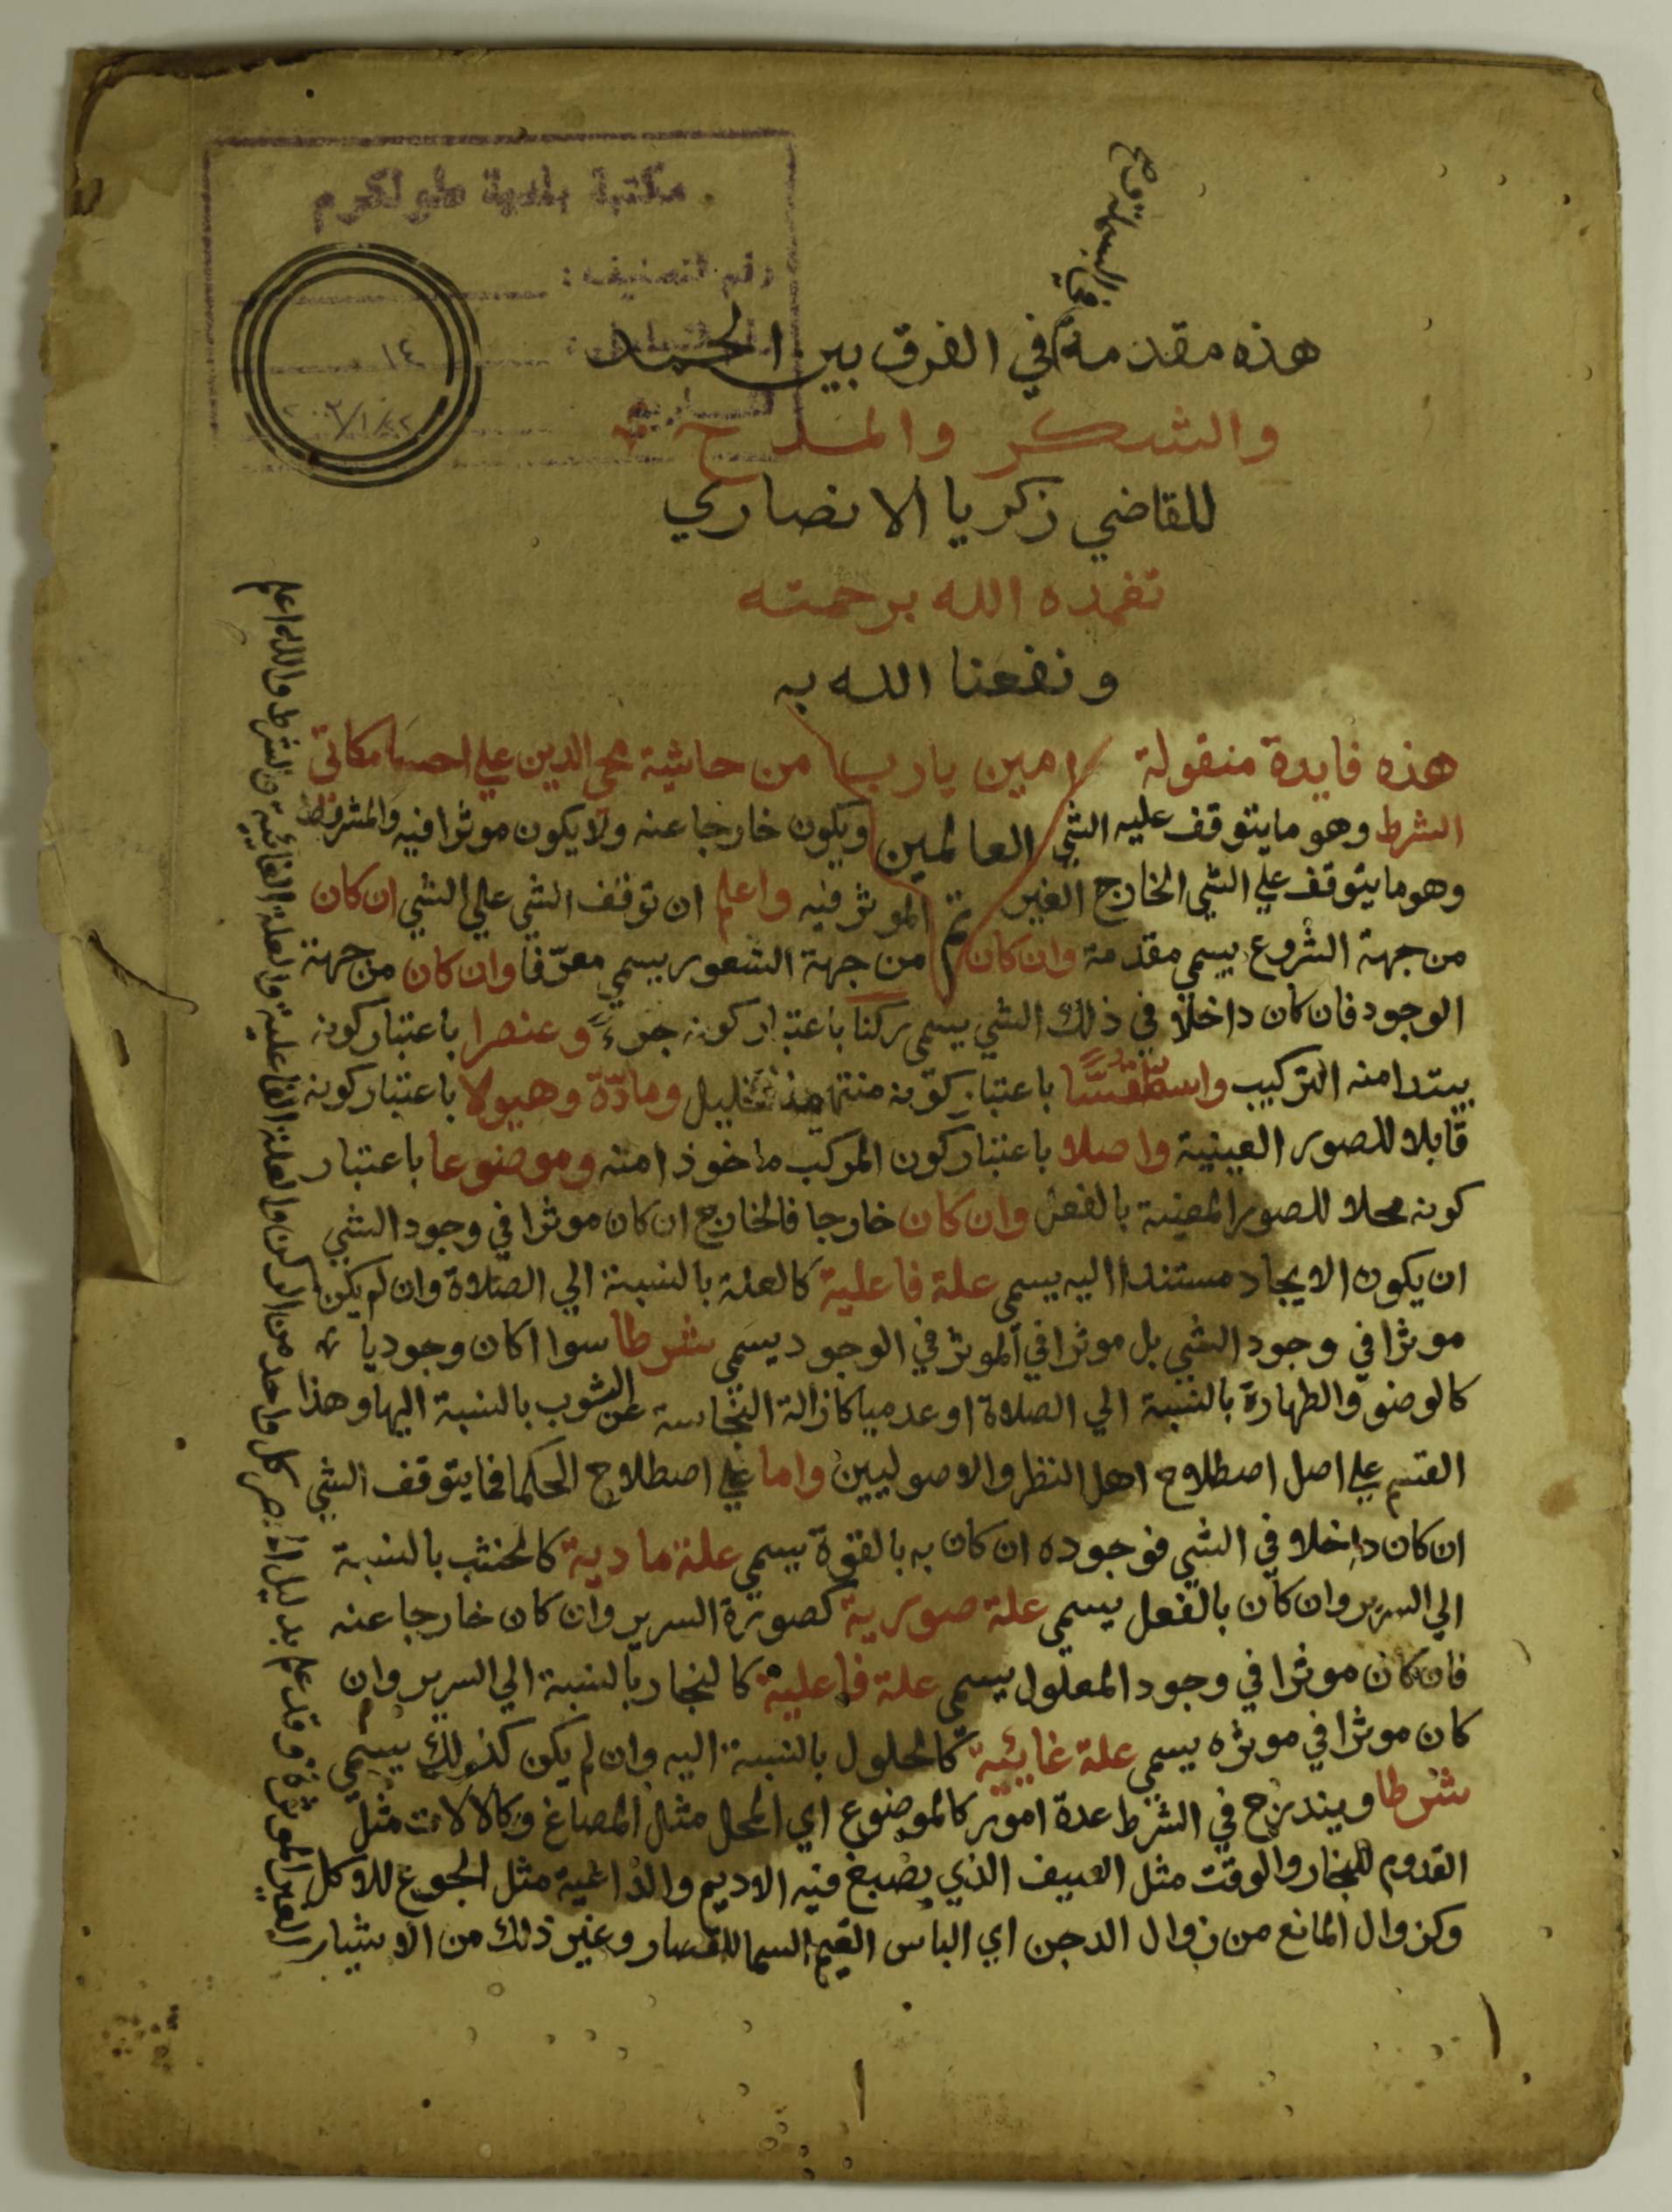 مكتبة بلدية طولكرم
رقم التصنيف :
١٤
في البسملة و
هذه مقدمة في الفرق بين الحمد
والشكر والمدح
للقاضي زكريا الانصاري
تغمده الله برحمته
ونفعنا الله به
امين يارب
العالمين
تم
هذه فايدة منقولة من حاشية محي الدين علي احسامكاتي
الشرط وهو مايتوقف عليه الشي ويكون خارجا عنه ولا يكون موثرا فيه والمشروط
وهو مايتوقف علي الشي الخارج الغير الموثر فيه واعلم ان توقف الشي علي الشي ان كان
من جهة الشروع يسمي مقدمة وان كان من جهة الشعور يسمي معرّفا وان كان من جهة
الوجود فان كان داخلا في ذلك الشي يسمي ركنا باعتبار كونه جزء وعنصرا باعتبار كونه
يبتدا منه التركيب واسطقسّا باعتبار كونه منتهي ومادّة وهيولا باعتبار كونه
قابلا للصور العينية واصلا باعتبار كون المركب ماخوذا منه وموضوعا باعتبار
كونه محلا للصور المعينة بالفعل وان كان خارجا فالخارج ان كان موثرا في وجود الشي
ان يكون الايجاد مستندا اليه يسمي علة فاعلية كالعلة بالنسبة الي الصلاة وان لم يكن
موثرا في وجود الشي بل موثرا في الموثر في الوجود يسمي شرطا سوا اكان وجوديا
كالوضو والطهارة بالنسبة الي الصلاة او عدميا كازالة النجاسة عن الثوب بالنسبة اليها وهذا
القسم علي اصل اصطلاح اهل النظر والاصوليين واما علي اصطلاح الحكما فما يتوقف الشي
ان كان داخلا في الشي فوجوده ان كان به بالقوة يسمي علة مادية كالخشب بالنسبة
الي السرير وان كان بالفعل يسمي علة صورية كصورة السرير وان كان خارجا عنه
فان كان موثرا في وجود المعلول يسمي علة فاعلية كالنجار بالنسبة الي السرير وان
كان موثرا في موثره يسمي علة غايئية كالحلول بالنسبة اليه وان لم يكن كذلك يسمي
شرطا ويندرج في الشرط عدة امور كالموضوع اي المحل مثال المصاغ وكالالات مثل
القدوم للنجار والوقت مثل الصيف الذي يصبغ فيه الاديم والداعية مثل الجوع للاوكل
وكزوال المانع من زوال الدجن اي الباس الغيم السما للقصار وغير ذلك من الاشيا
الغير الموثرة وقد علم بدليل الحصر كل واحد من الركن والعلة الفاعلية والعلة الغائية والشرط والله اعلم
١
١